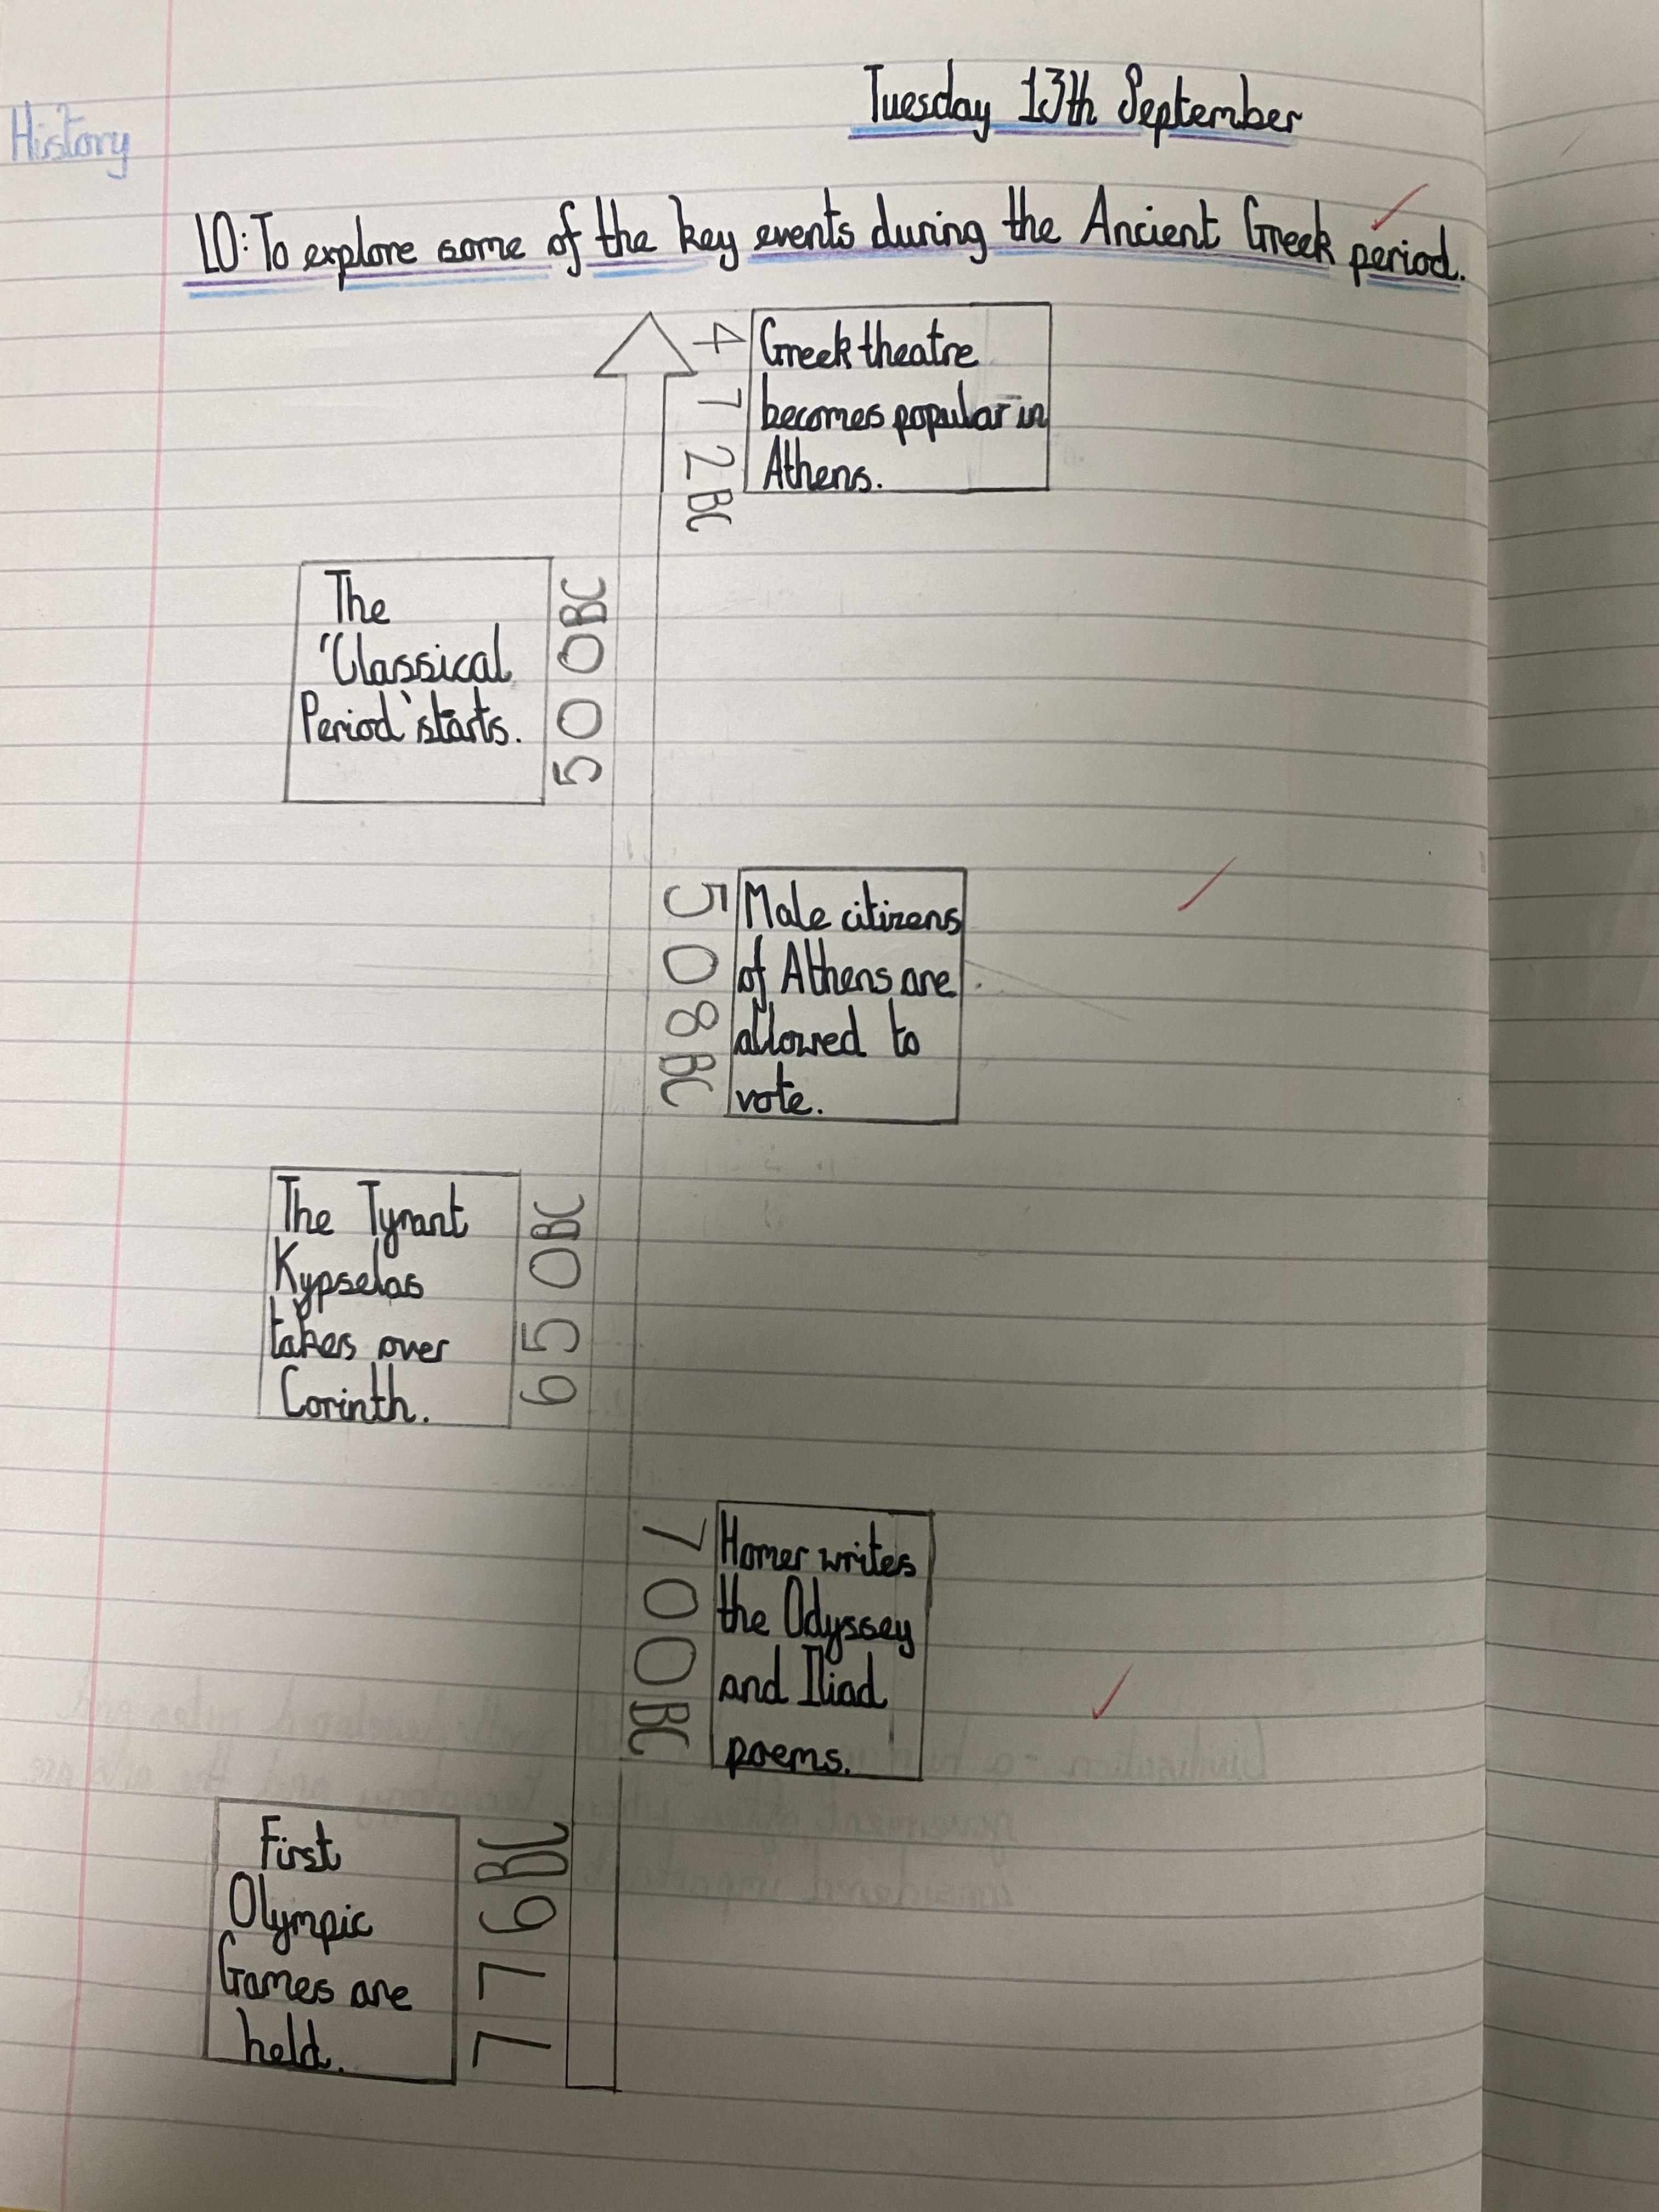 Tuesday 13th September
History
LO: To explore some of the key events during the Ancient Greek period.
472 BC
Greek theatre
becomes popular in
Athens.
The
'Classical
Period' starts.
500BC
508BC
Male citizens
of Athens are
allowed to
vote.
The Tyrant
Kypselas
takes over
Corinth.
650BC
700BC
Homer writes
the Odyssey
and Iliad
poems.
First
Olympic
Games are
held.
776BC